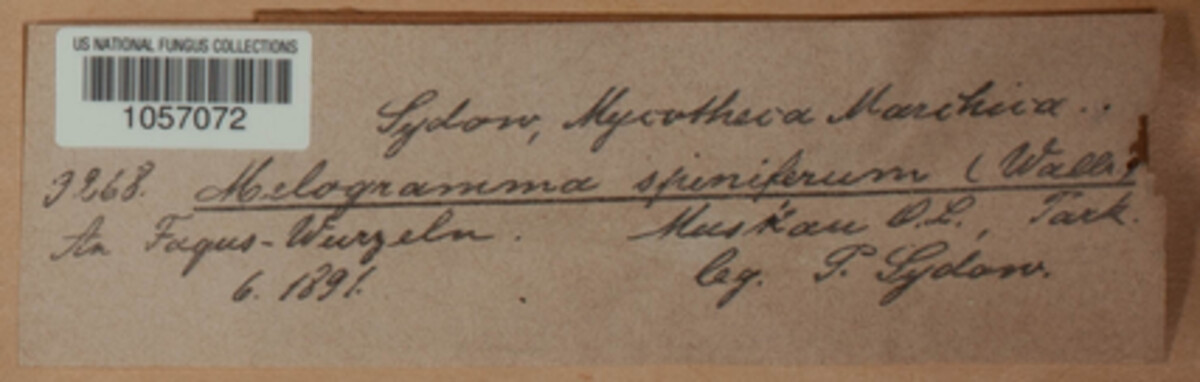 US NATIONAL FUNGUS COLLECTIONS
1057072
Sydow, Mycotheca Marchica..
3268. Melogramma spiniferum (Wallr)
An Fagus-Wurzeln. Muskau O.L., Park.
6. 1891. leg. P. Sydow.